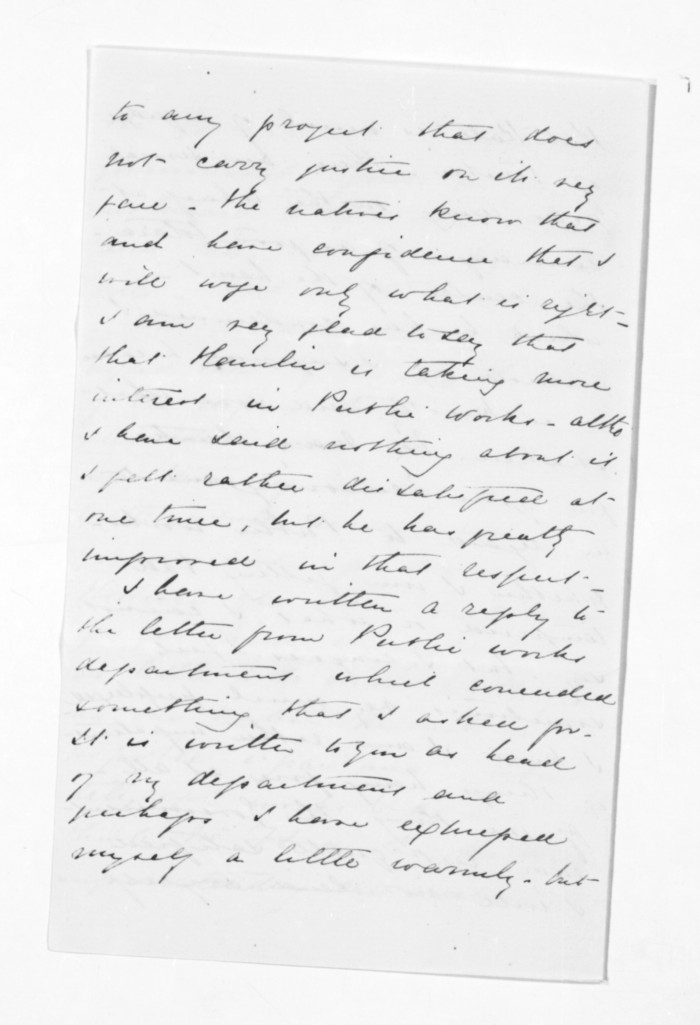 to any project that does
not carry justice on its very
face - the natives know that
and have confidence that I
will urge only what is right -
I am very glad to say that
that Hamlin is taking more
interest in Public works - altho
I have said nothing about it
I felt rather dissatisfied at
one time, but he has greatly
improved in that respect -
I have written a reply to
the letter from Public works
department which conceded
something that I asked for -
It is written to you as head
of my department and
perhaps I have expressed
myself a little warmly - but